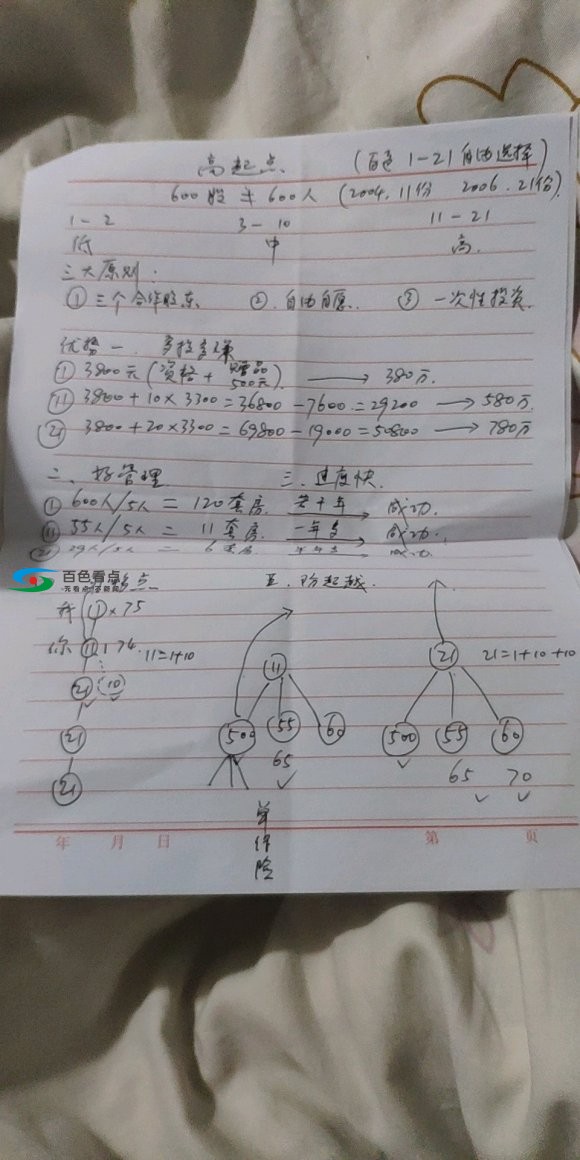 高起点 (百色1-21自由选择)
600股≠600人 (2004.11份 2006.21份)
1-2 3-10 11-21
低 中 高
三大原则.
① 三个合作股东 ② 自由自愿. ③ 一次性投资
优势一、多投多赚
① 3800元(资格+赠品500元). → 380万.
⑪ 3800+10×3300=36800-7600=29200 → 580万.
㉑ 3800+20×3300=69800-19000=50800 → 780万
二、好管理 三.速度快.
① 600人/5人 = 120套房. 若干年 → 成功.
⑪ 55人/5人 = 11套房. 一年多 → 成功.
㉑ 29人/5人 = 6套房 → 成功.
百色看点
点 五.防超越.
① ×75
你 ⑪ 11=1+10
㉑ (10)
㉑
㉑
⑪
500 55 60
65
㉑ 21=1+10+10
500 55 60
65 70
年 月 日 第 页